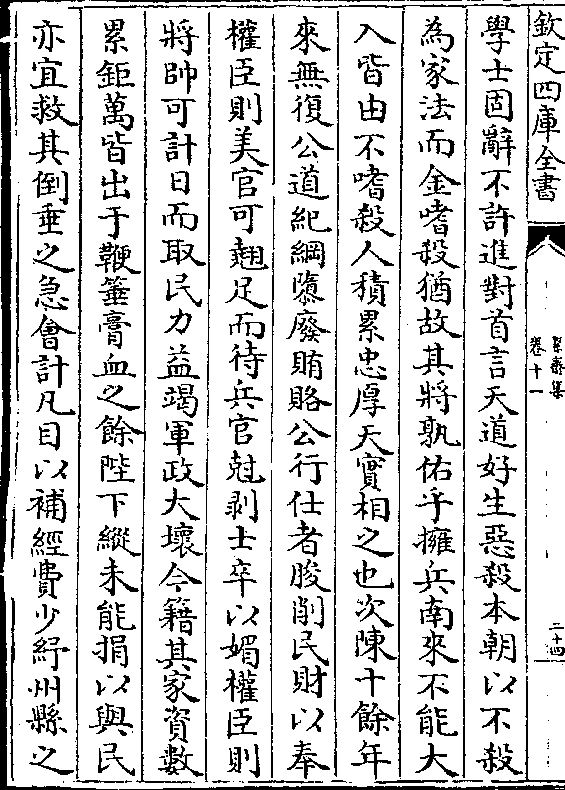 欽定四庫全書
絜齋集
卷十一
二十四
學士固辭不許進對首言天道好生惡殺本朝以不殺
為家法而金嗜殺猶故其將孰佑乎擁兵南來不能大
入皆由不嗜殺人積累忠厚天實相之也次陳十餘年
來無復公道紀綱隳廢賄賂公行仕者朘削民財以奉
權臣則美官可翹足而待兵官尅剥士卒以媚權臣則
將帥可計日而取民力益竭軍政大壞今籍其家資數
累鉅萬皆出于鞭箠膏血之餘陛下縱未能捐以與民
亦宜救其倒垂之急會計凡目以補經費少紓州縣之